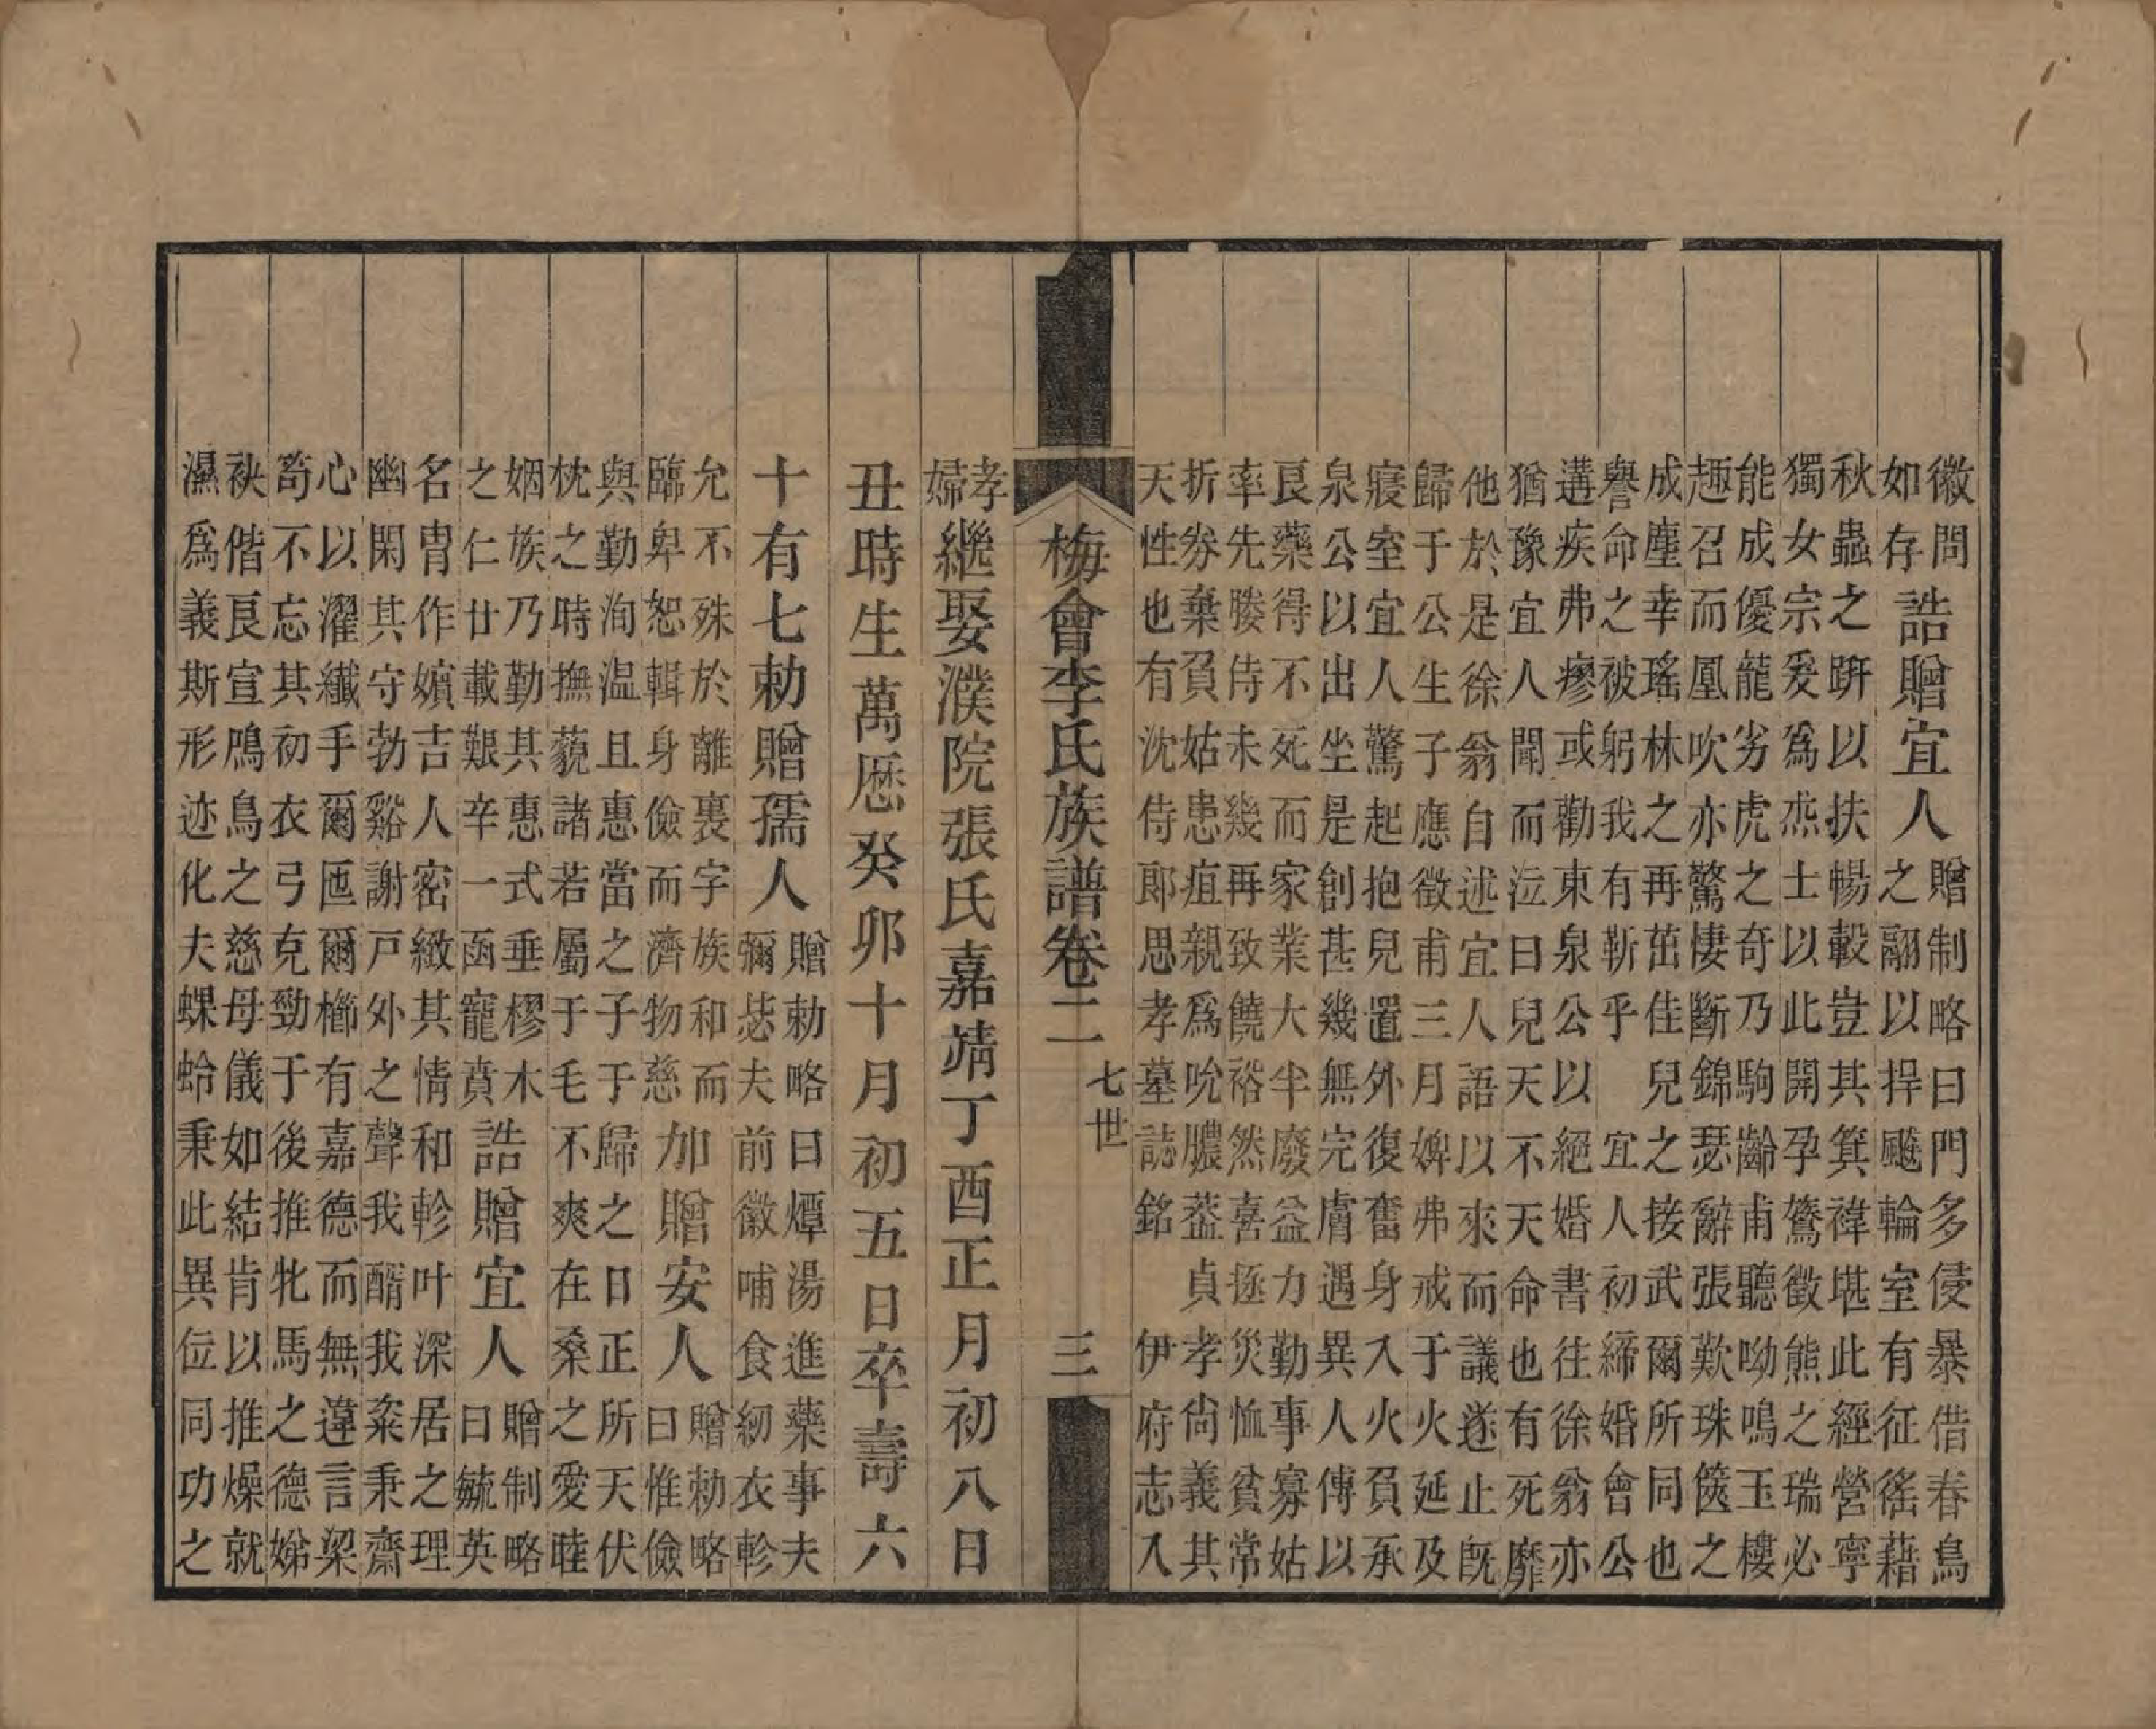 徽問
如存
誥贈宜人
贈制略曰門多侵暴借春鳥
之翮以捍颷輪室有征徭藉
秋蟲之趼以扶暢轂豈其箕禕堪此經營寧
獨女宗爰爲烝士以此開孕鶩徵熊之瑞必
能成優龍劣虎之奇乃駒齡甫聽呦鳴玉樓
趣召而凰吹亦驚悽斷錦瑟辭張歎珠篋之
成塵幸瑤林之再茁佳兒之接武爾所同也
譽命之被躬我有靳乎 宜人初締婚會公
遘疾弗瘳或勸東泉公以絕婚書往徐翁亦
猶豫宜人聞而泣曰兒天不天命也有死靡
他於是徐翁自述宜人語以來而議遂止旣
歸于公生子應徵甫三月婢弗戒于火延及
寢室宜人驚起抱兒置外復奮身入火負承
泉公以出坐是創甚幾無完膚遇異人傳以
良藥得不死而家業大半廢益力勤事寡姑
率先媵侍未幾再致饒裕然喜拯災恤貧常
折券棄負姑患疽親爲吮膿葢貞孝尙義其
天性也有沈侍郎思孝墓誌銘 伊府志入
梅會李氏族譜卷二 七世 三
孝
婦
繼娶濮院張氏嘉靖丁酉正月初八日
丑時生萬厯癸卯十月初五日卒壽六
十有七勅贈孺人
贈勅略曰燂湯進藥事夫
彌毖夫前徽哺食紉衣軫
允不殊於離裏字族和而
臨卑恕輯身儉而濟物慈
加贈安人
贈勅略
曰惟儉
與勤洵温且惠當之子于歸之日正所天伏
枕之時撫藐諸若屬于毛不爽在桑之愛睦
姻族乃勤其惠式垂樛木
之仁廿載艱辛一函寵賁
誥贈宜人
贈制略
曰毓英
名胄作嬪吉人密緻其情和軫叶深居之理
幽閑其守勃谿謝戸外之聲我醑我粢秉齋
心以濯纖手爾匜爾櫛有嘉德而無違言梁
笱不忘其初衣弓克勁于後推牝馬之德娣
袂偕良宣鳲鳥之慈母儀如結肯以推燥就
濕爲義斯形迹化夫蜾蛉秉此異位同功之